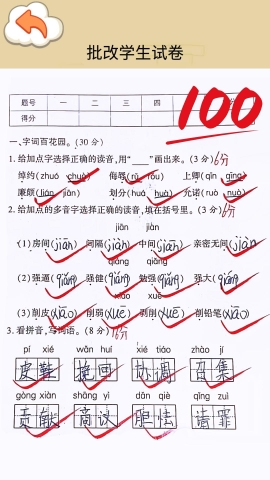 批改学生试卷
题号 一 二 三 四
得分
100
一、字词百花园。(30分)
1. 给加点字选择正确的读音,用“____”画出来。(3分) 6分
绰约(zhuó chuò) 侮辱(rǔ rǒu) 上卿(qīn qīng)
廉颇(lián jiān) 划分(huá huà) 允诺(ruò nuò)
2. 给加点的多音字选择正确的读音,填在括号里。(3分)
jiān jiàn
(1) 房间(jiān) 间隔(jiàn) 中间(jiān) 亲密无间(jiàn)
qiáng qiǎng
(2) 强逼(qiǎng) 强健(qiáng) 勉强(qiǎng) 强大(qiáng)
xiāo xuē
(3) 削皮(xiāo) 削弱(xuē) 剥削(xuē) 削铅笔(xiāo)
3. 看拼音,写词语。(8分)
pí xié wǎn huí xié tiáo zhào jí
皮鞋 挽回 协调 召集
gòng xiàn shāng yì dǎn qiè qǐng zuì
贡献 商议 胆怯 请罪